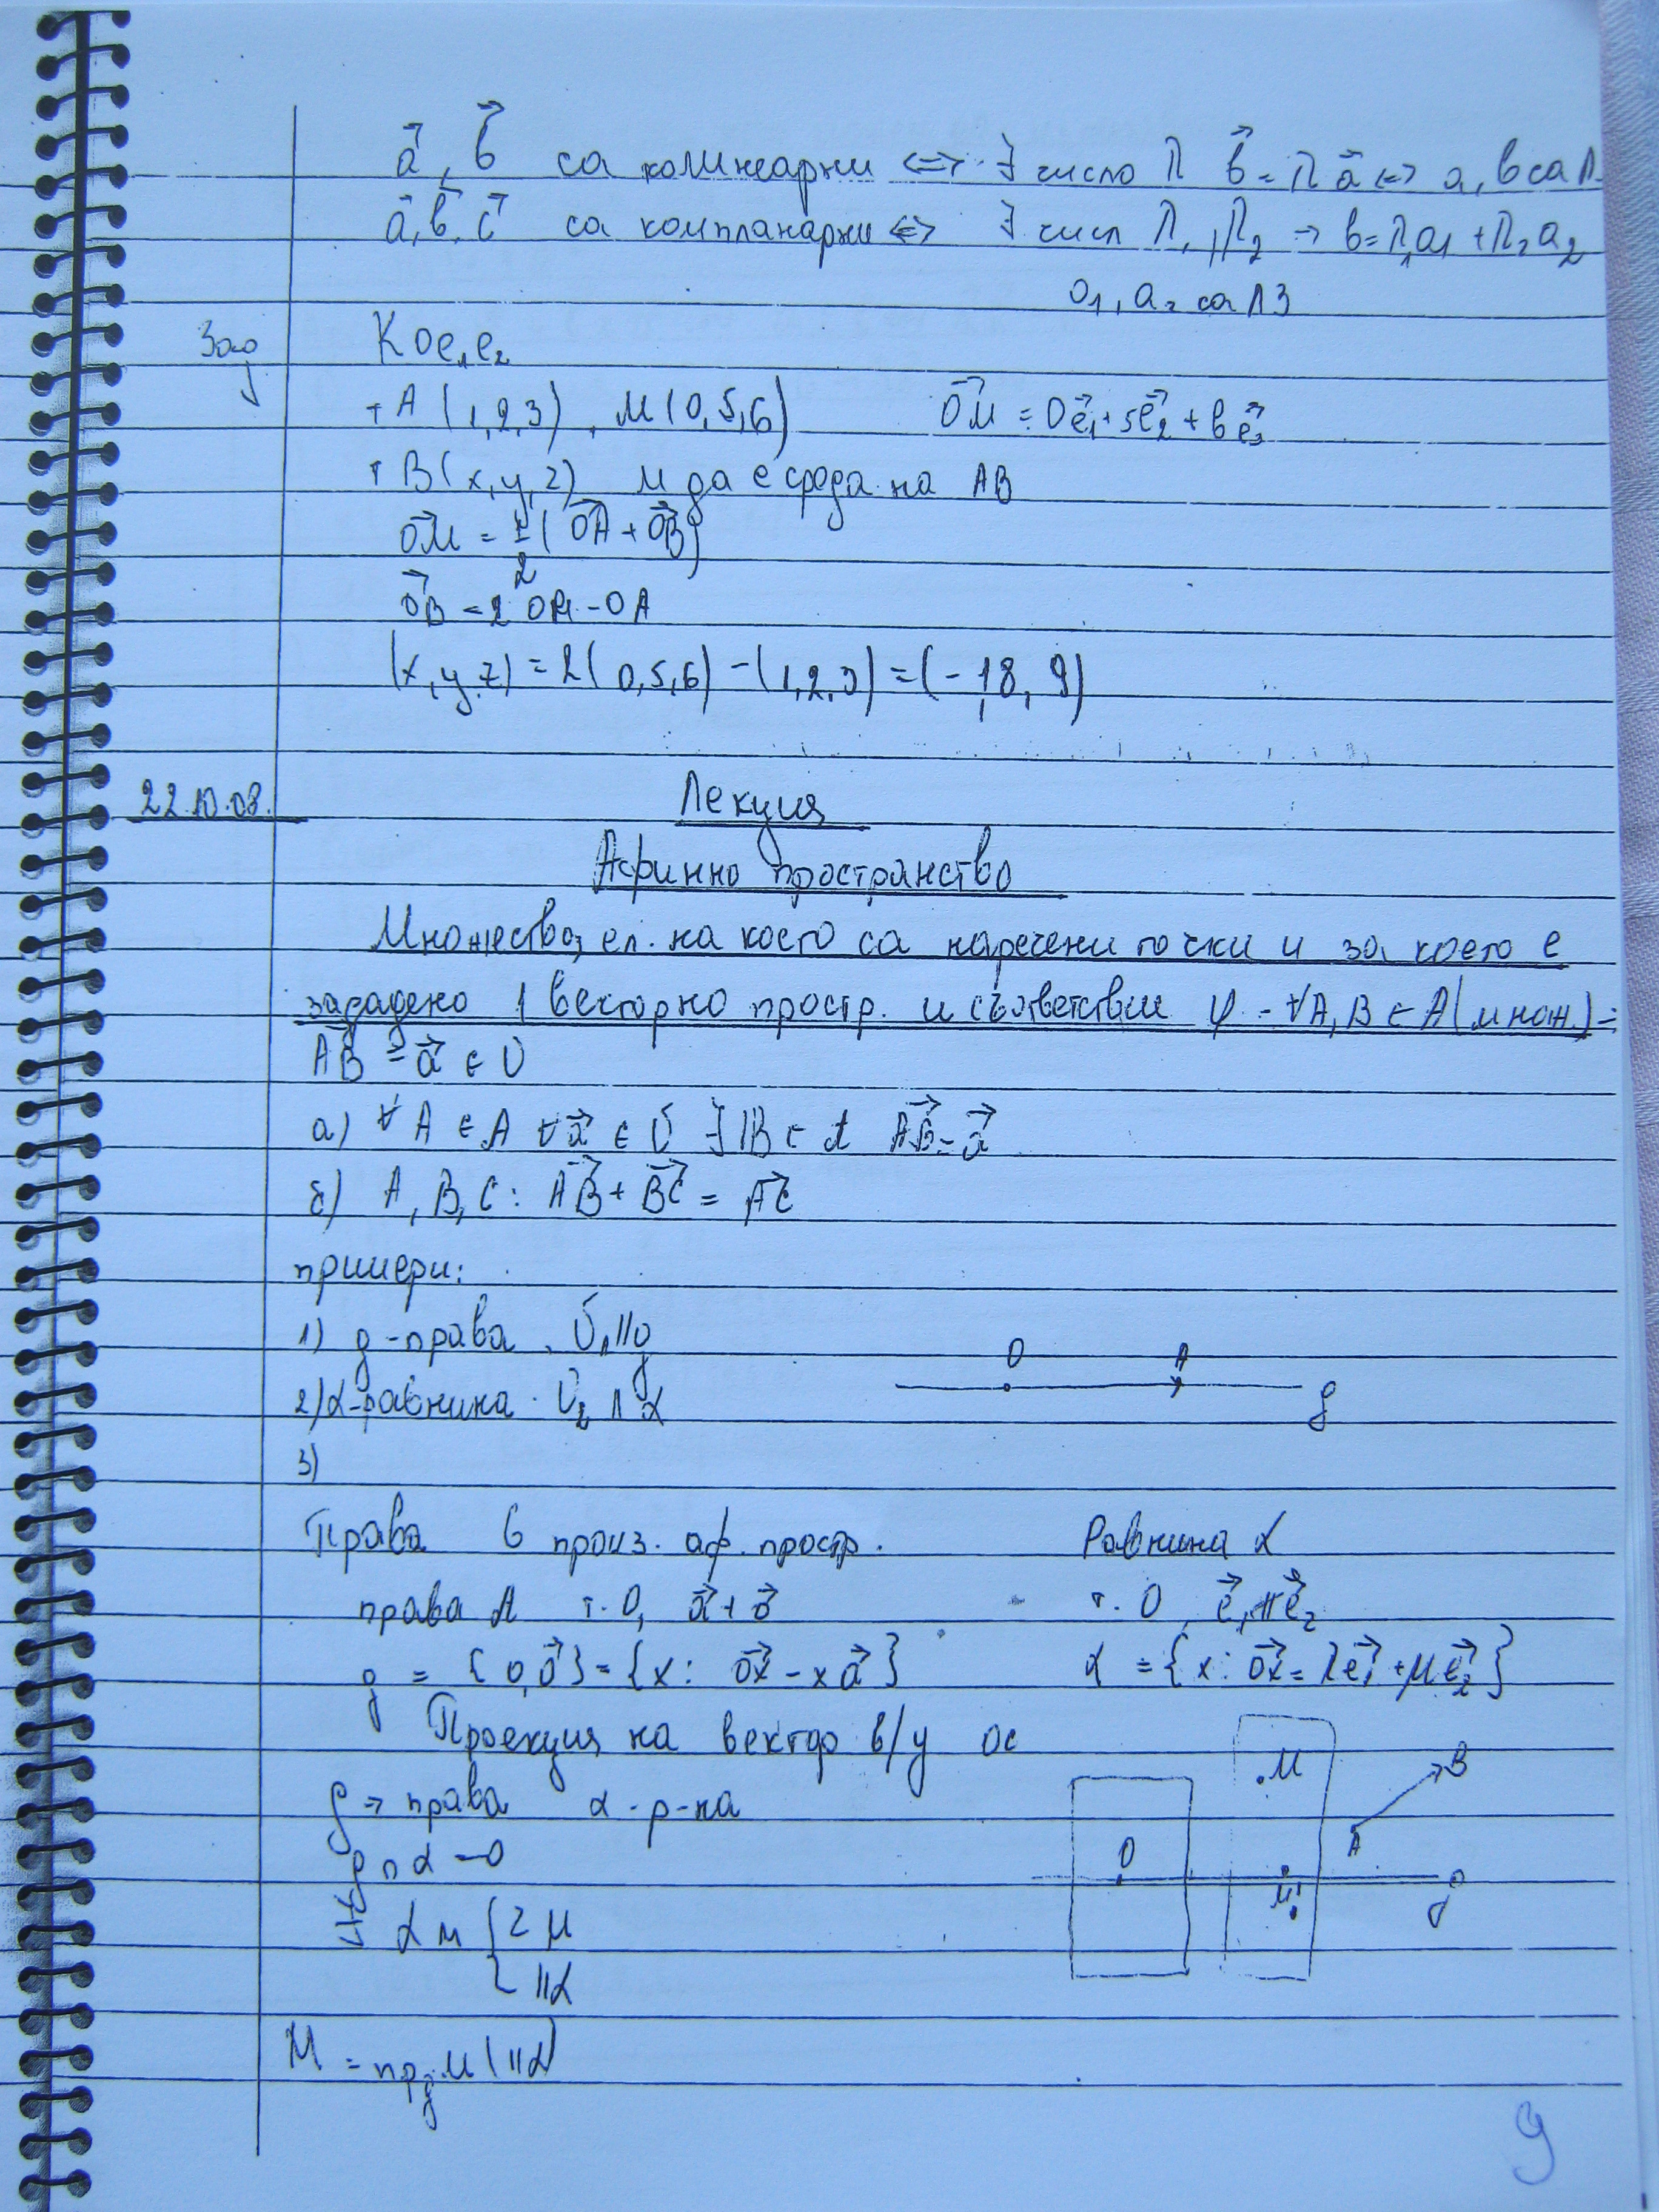 a⃗, b⃗ са колинеарни ⇔ ∃ число λ b⃗ = λ a⃗ ⇔ a, b са Л
a⃗, b⃗, c⃗ са компланарни ⇔ ∃ числ λ₁, λ₂ → b = λ₁a₁ + λ₂a₂
a₁, a₂ са ЛЗ
Зад
K Oe₁e₂
т A (1,2,3), M (0,5,6) OM⃗ = 0e⃗₁ + 5e⃗₂ + 6e⃗₃
т B (x, y, z) M да е среда на AB
OM⃗ = 1/2 (OA⃗ + OB⃗)
OB⃗ = 2 OM - OA
(x, y, z) = 2(0,5,6) - (1,2,3) = (-1, 8, 9)
22.10.08. Лекция
Афинно пространство
Множество, ел. на което са наречени точки и за което е
зададено 1 векторно простр. и съответствие φ - ∀A, B ∈ A (множ.) =
AB⃗ = a⃗ ∈ U
а) ∀ A ∈ A ∀ a⃗ ∈ U ∃! B ∈ A AB⃗ = a⃗
б) A, B, C : AB⃗ + BC⃗ = AC⃗
примери:
1) g - права. U₁ || g
O A g
2) α - равнина. U₂ || α
3)
Права в произ. аф. простр. Равнина α
права A т. O, a⃗ ≠ o⃗ т. O, e⃗₁ ∦ e⃗₂
g = {O, a⃗} = {x : Ox⃗ = x a⃗} α = {x : Ox⃗ = λe⃗₁ + μe⃗₂}
Проекция на вектор в/у ос
M B
g → права α - р-на
A
g ∩ α = O
O M' g
α м { Z M
|| α
M = пр g M (|| α)
9